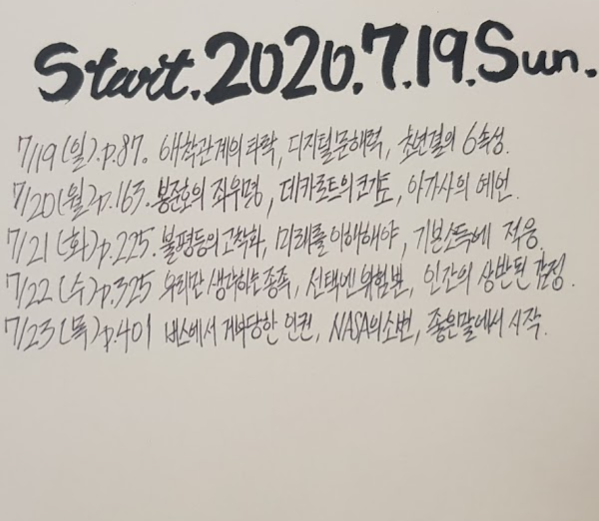 Start. 2020. 7. 19. Sun.
7/19 (일). p.87. 애착관계의 타락, 디지털 문해력, 초연결의 6속성.
7/20 (월) p.163. 봉준호의 좌우명, 데카르트의 코기토, 아가사의 예언.
7/21 (화) p.225. 불평등의 고착화, 미래를 이해해야, 기본소득에 적응.
7/22 (수) p.325 우리만 생각하는 종족, 선택엔 위험분, 인간의 상반된 감정.
7/23 (목) p.401 버스에서 거부당한 인권, NASA의 소변, 좋은말에서 시작.